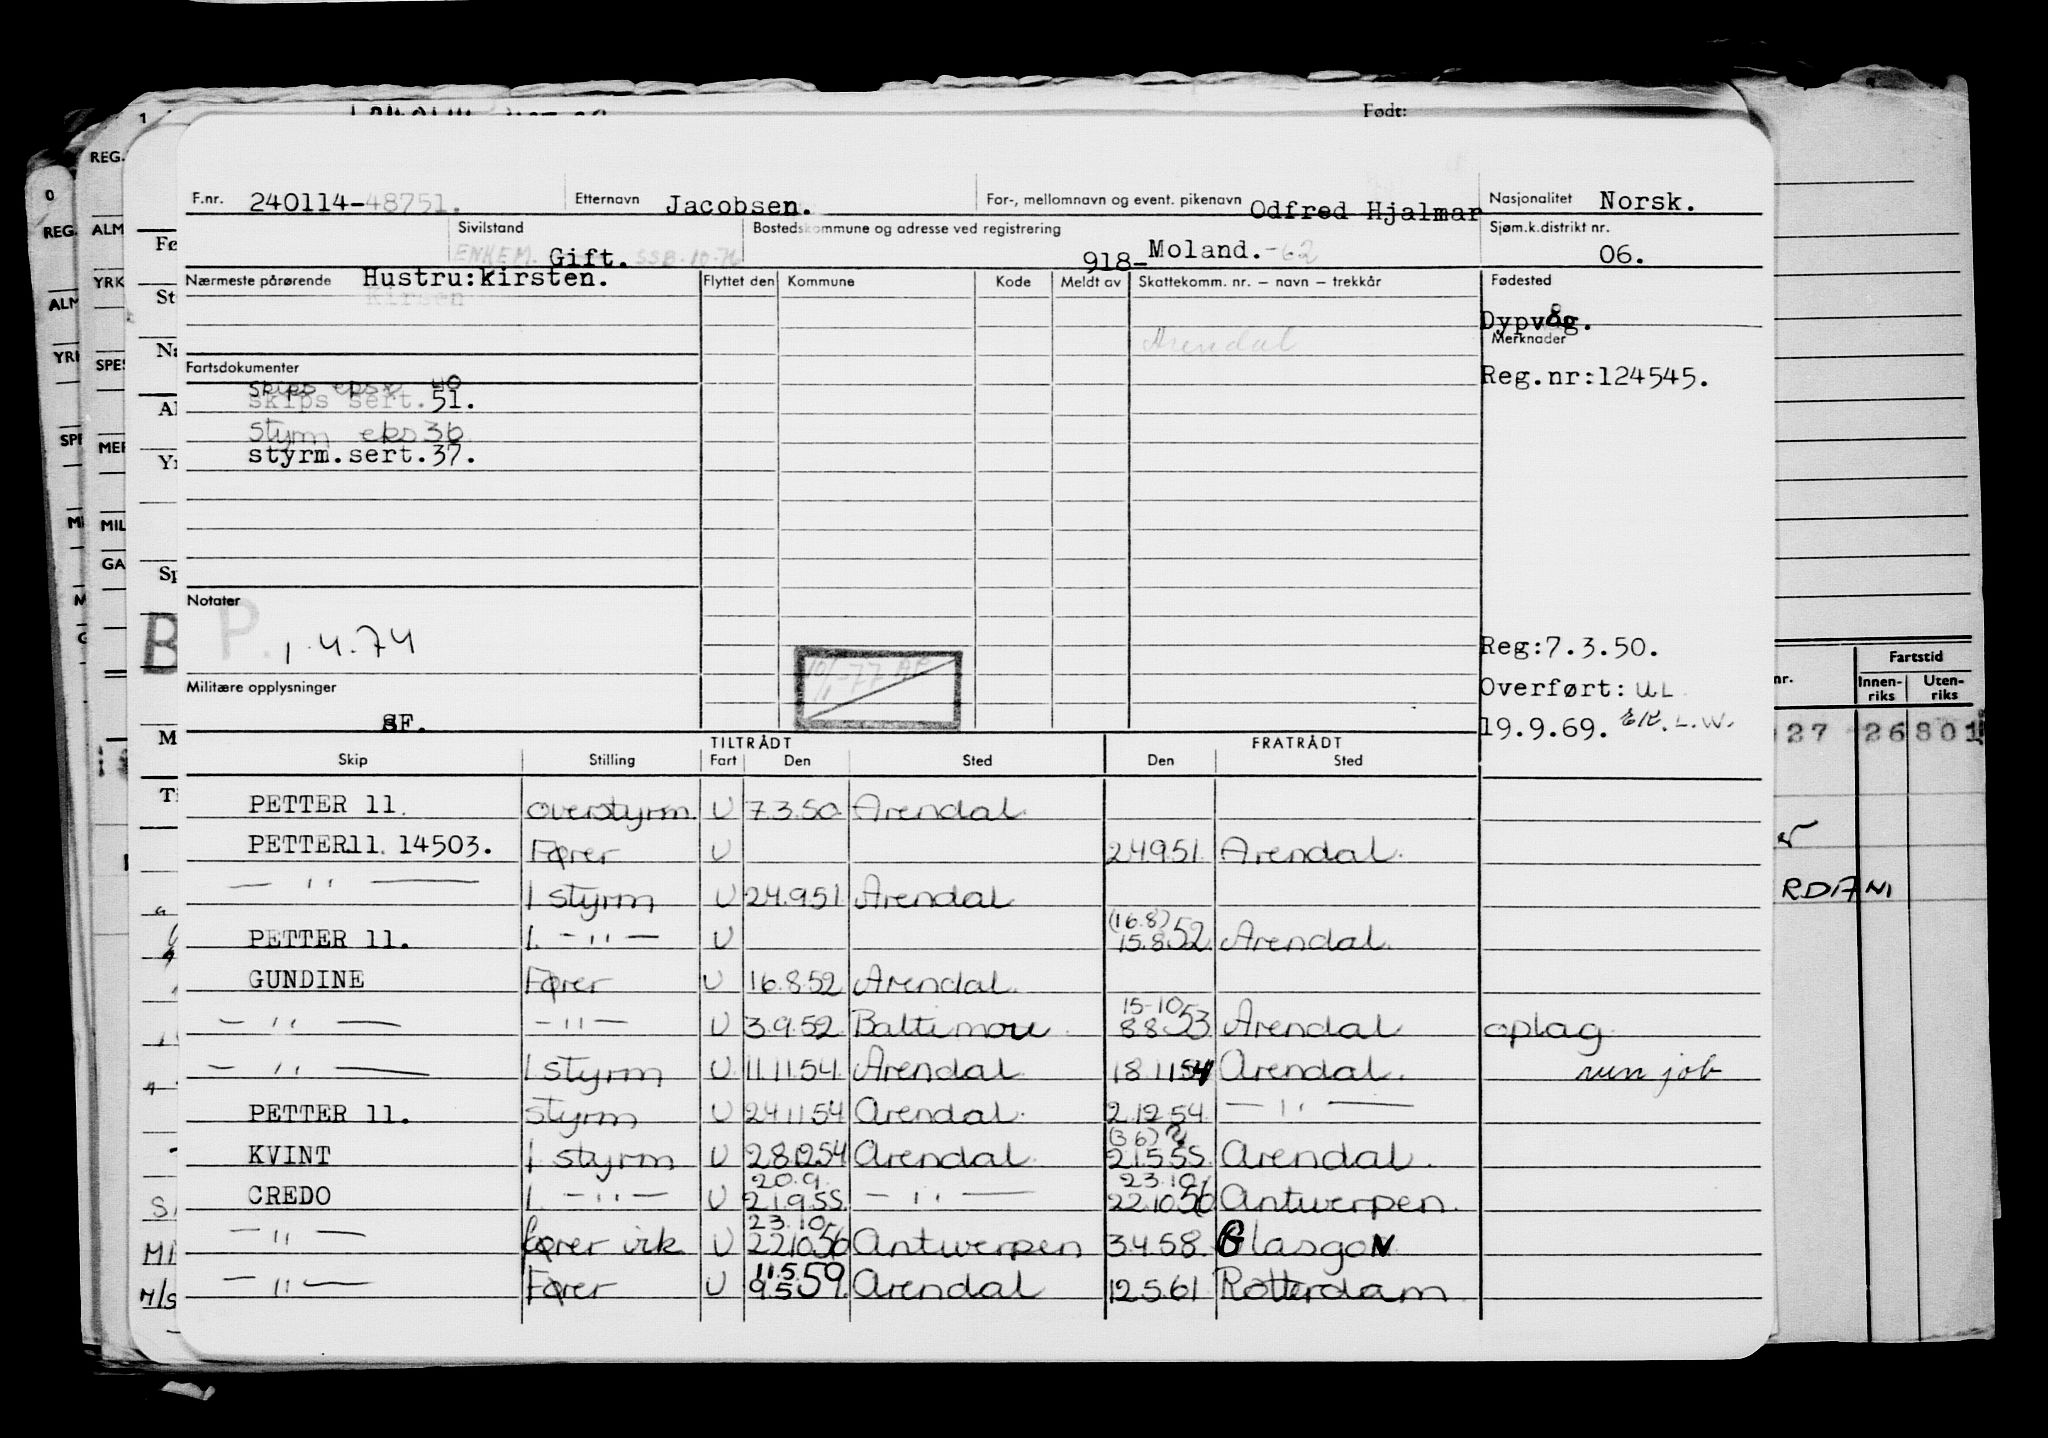 Født:
F.nr. 240114-48751. Etternavn Jacobsen. For-, mellomnavn og event. pikenavn Odfred Hjalmar Nasjonalitet Norsk.
Sivilstand ENKEM. Gift. SSB-10-76 Bostedskommune og adresse ved registrering 918- Moland. -62 Sjøm.k.distrikt nr. 06.
Nærmeste pårørende Hustru:kirsten. Flyttet den Kommune Kode Meldt av Skattekomm. nr. – navn – trekkår Fødested
Kirsen
Dypvåg.
Arendal Merknader
Fartsdokumenter Reg.nr:124545.
Skips eks. 40
skips sert.51.
Styrm eks 36
styrm.sert.37.
Notater
B P. 1.4.74 Reg:7.3.50.
10/1-77
Militære opplysninger Overført: UL
SF. 19.9.69. L.W.
TILTRÅDT FRATRÅDT
Skip Stilling Fart Den Sted Den Sted
PETTER 11. overstyrm U 7.3.50 Arendal
PETTER11. 14503. Fører U 24951. Arendal.
— '' — 1 styrm U 24.9.51 Arendal
PETTER 11. 1. —''— U (16.8) 15.8.52 Arendal.
GUNDINE Fører U 16.8.52 Arendal.
— '' — —''— U 3.9.52 Baltimore 15-10 8.8.53 Arendal oplag
— '' — 1 styrm U 11.11.54. Arendal 18.11.54 Arendal. run job
PETTER 11. styrm U 24.11.54 Arendal. 2.12.54. — '' —
KVINT 1 styrm U 28.12.54 Arendal. (3 6) 21.5.55. Arendal.
CREDO 1. —''— U 20.9. 21.9.55. — '' — 23.10. 22.10.56 Antwerpen.
— '' — fører vik U 23.10. 22.10.56 Antwerpen 3.4.58. Glasgow
— '' — Fører U 11.5. 9.5.59. Arendal 12.5.61 Rotterdam
REG.
ALM
YRK
SPES
MER
MIL
GA
Fartstid
nr. Innen-riks Uten-riks
27 26 801
RDIANI